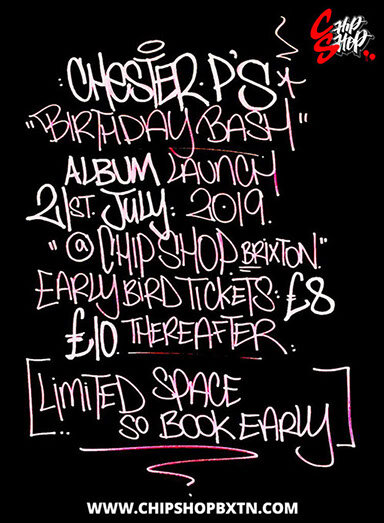 CHIP SHOP
CHESTER P'S
"BIRTHDAY BASH"
ALBUM LAUNCH
21ST. JULY: 2019.
"@ CHIP SHOP BRIXTON."
EARLY BIRD TICKETS: £8
£10. THEREAFTER.
LIMITED SPACE
SO BOOK EARLY
WWW.CHIPSHOPBXTN.COM